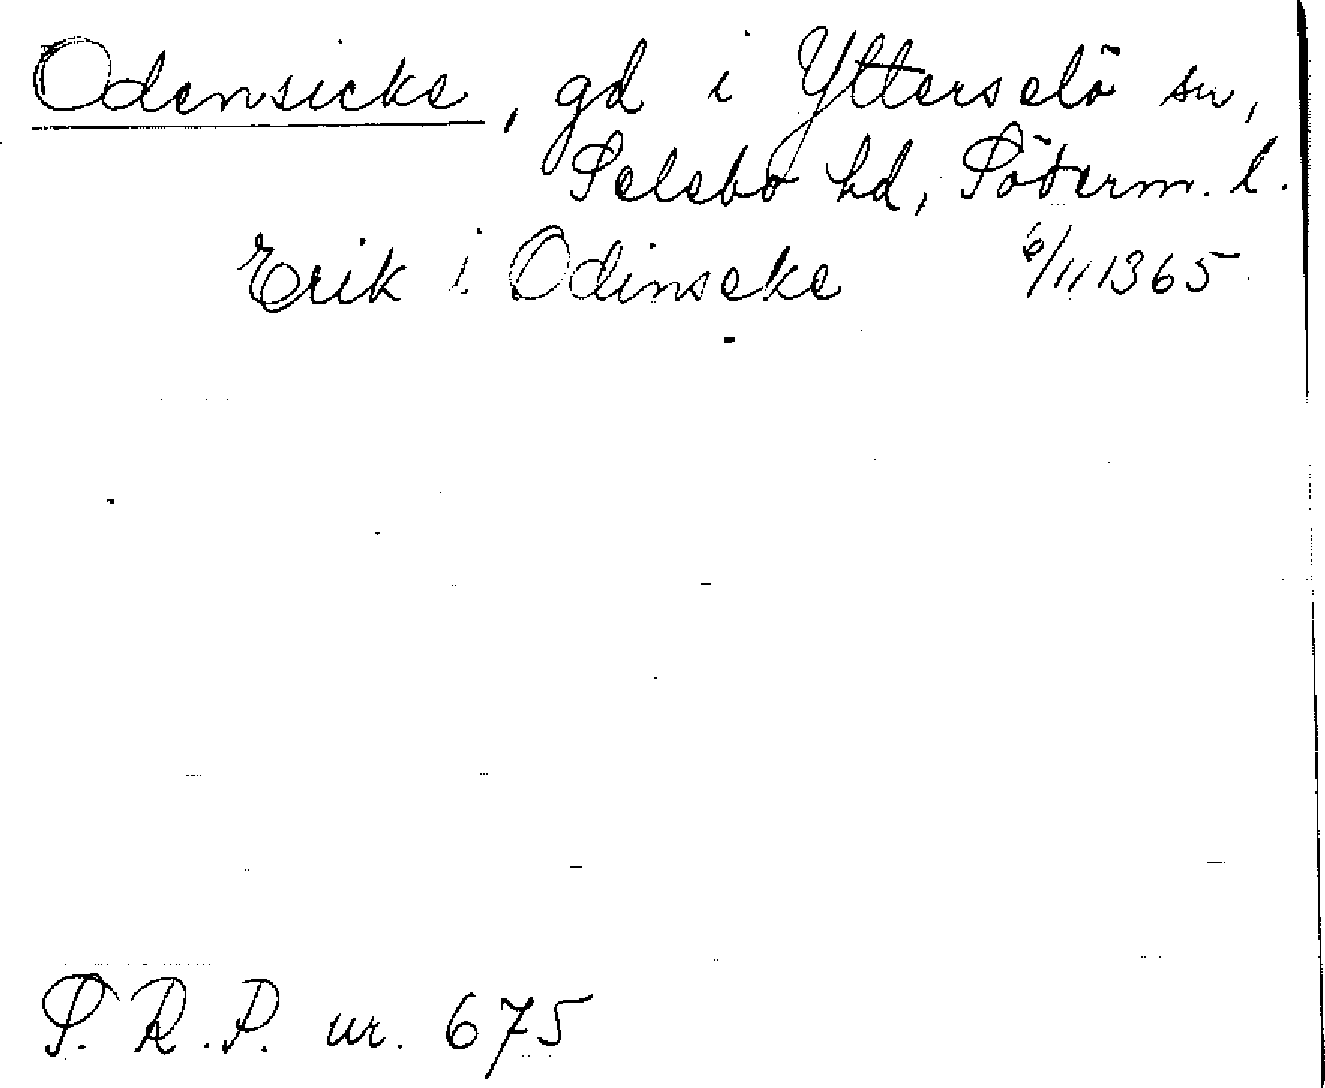 Odensicke, gd i Ytterselö sn,
Selebo hd, Söderm. l.
Erik i Odinseke 6/11 1365
S. R. P. nr. 675